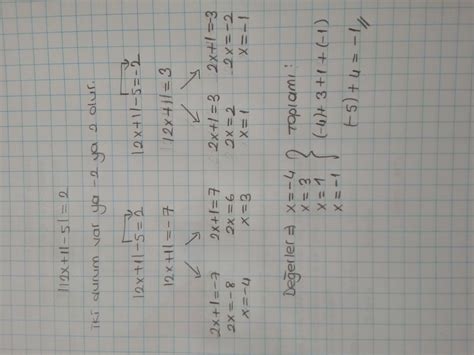 ||2x+1|-5|=2
iki durum var ya -2 ya 2 olur.
|2x+1|-5=2 |2x+1|-5=-2
|2x+1|=-7 |2x+1|=3
2x+1=-7 2x+1=7 2x+1=3 2x+1=-3
2x=-8 2x=6 2x=2 2x=-2
x=-4 x=3 x=1 x=-1
Değerler ⇒ x=-4 } Toplamı:
x=3 (-4)+3+1+(-1)
x=1 (-5)+4=-1//
x=-1